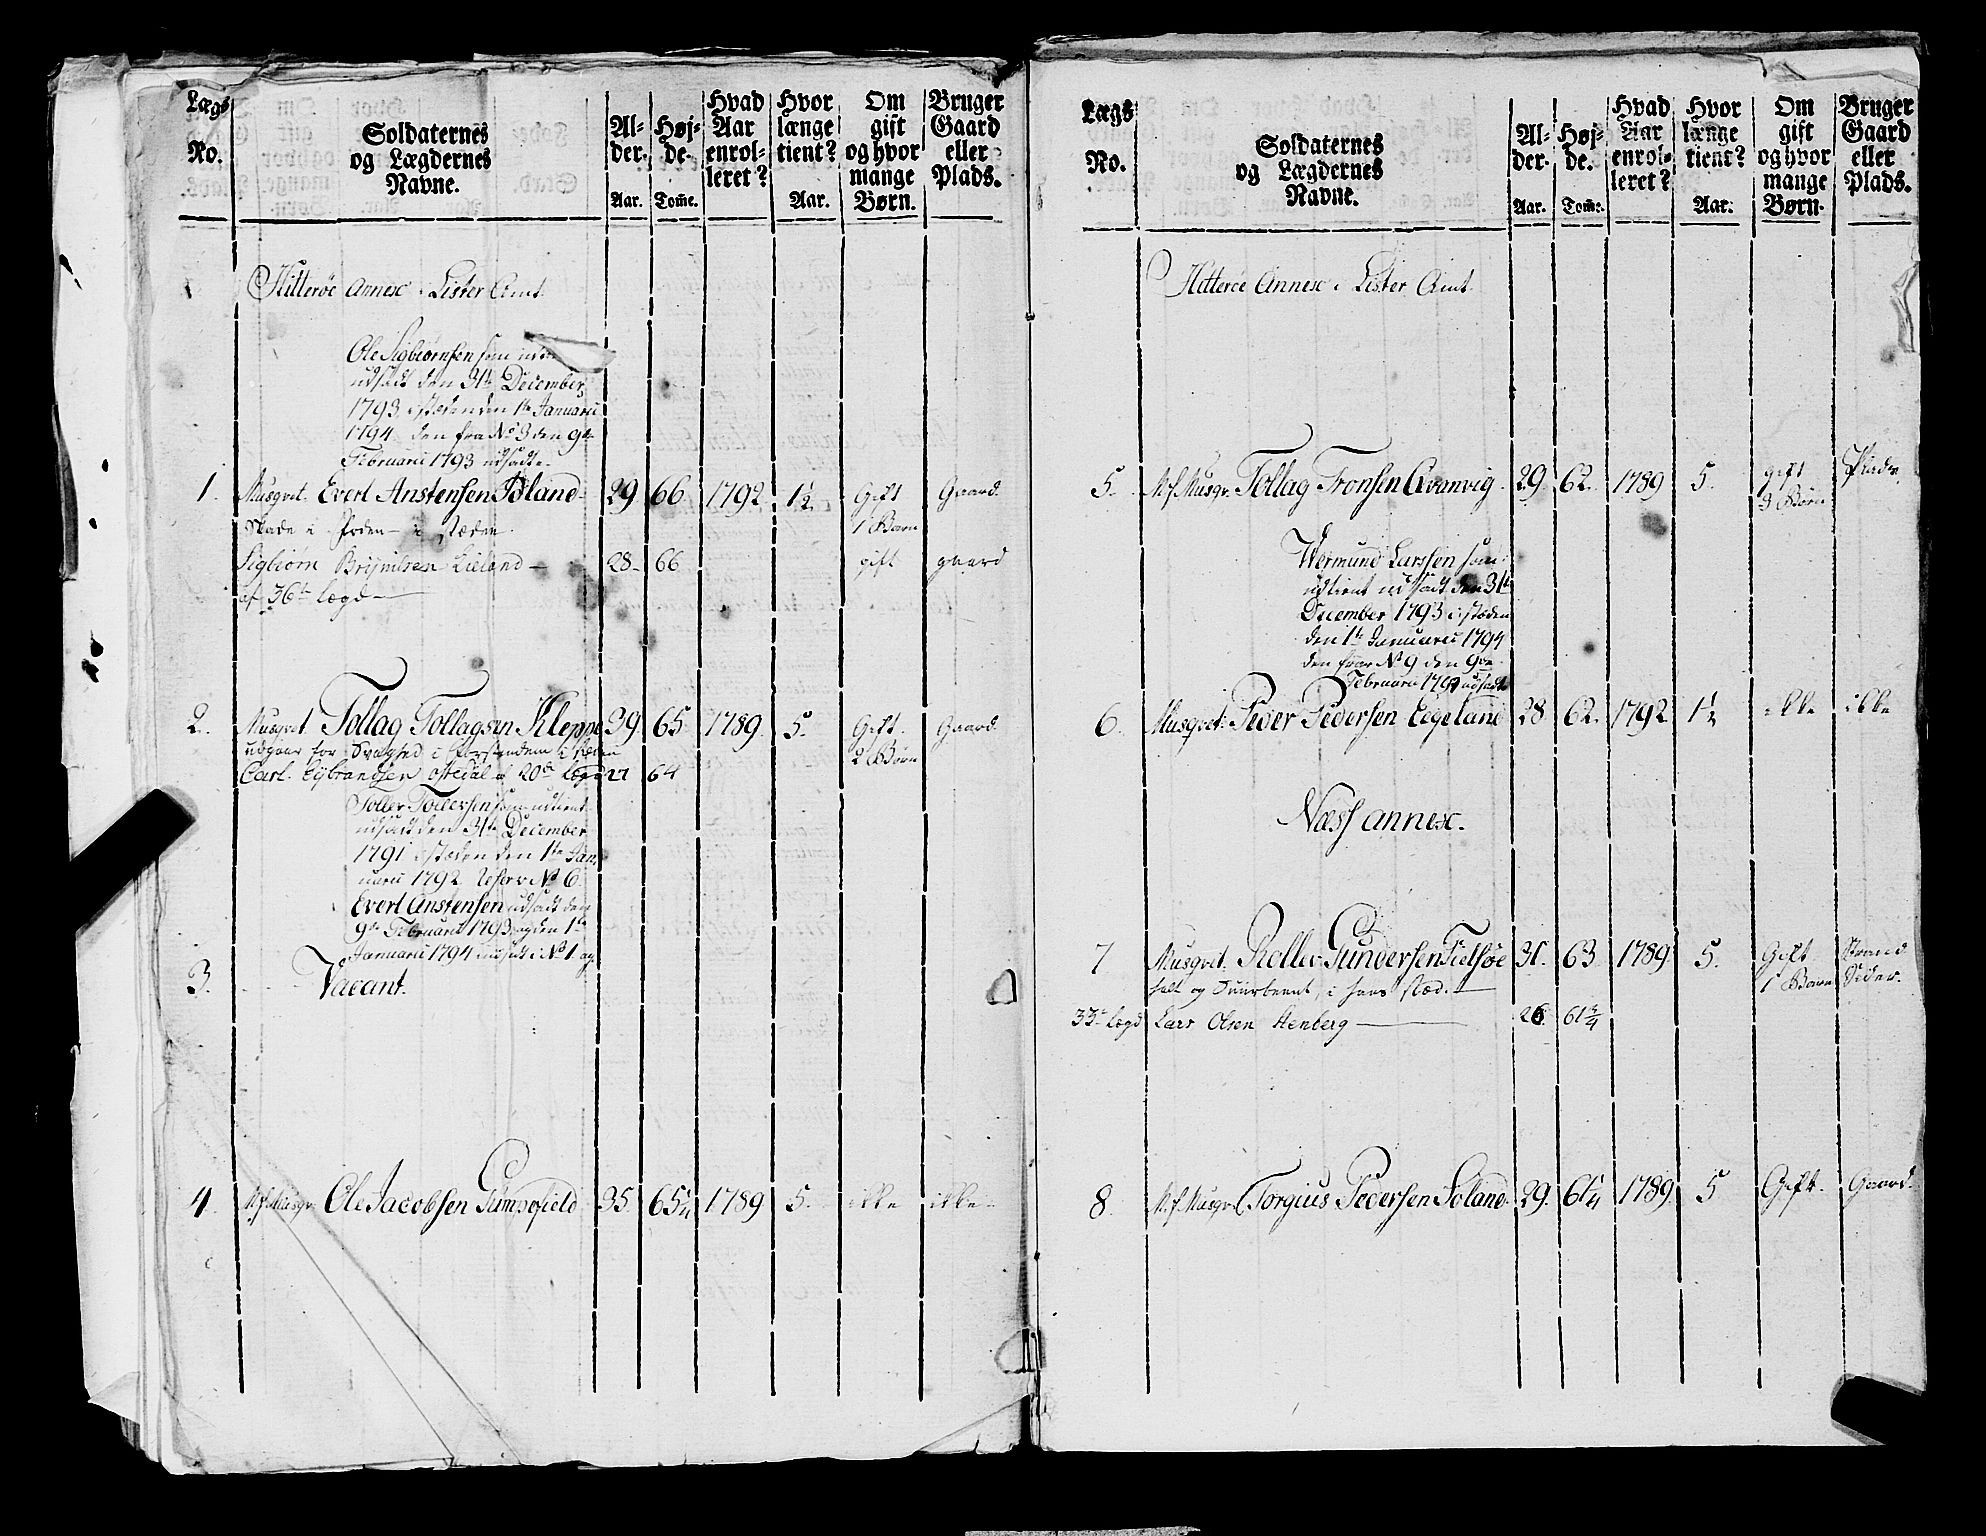 Lægs No. Soldaternes og Lægdernes Navne. Al-der. Aar. Høj-de. Tome. Hvad Aar enrol-leret? Hvor længe tient? Aar. Om gift og hvor mange Børn. Bruger Gaard eller Plads.
Hitterøe Annex i Lister Amt
Ole Sigbiørnsen som
udsadt den 31te December
1793 i stæden den 1te Januarii
1794 den fra No 3 den 9de
Februarii 1793 udsadte
1. Musqvet. Evert Anstensen Øland 29 66 1792 1½ Gift Gaard
Skade i i stæden 1 Barn
Sigbiørn Brynilsen Lieland 28 66 gift gaard
af 36te lægd
2. Musqvet. Tollag Tollagsen Kleppe 39 65 1789 5. Gift. Gaard.
udgaar for Svaghed i i stæden 2 Børn
Carl Sybrandsen af 20de lægd 27 64
Toller Tollersen som udtient
udsadt den 31te December
1791 i stæden den 1te Jan-
uarii 1792 Reserv No 6.
Evert Anstensen udsadt den
9de Februarii 1793 og den 1te
Januarii 1794 indsadt i No 1. og
3. Vacant.
4. N.f. Musqv. Ole Jacobsen Gumpefield 35 65¼ 1789 5. ikke ikke
Lægs No. Soldaternes og Lægdernes Navne. Al-der. Aar. Høj-de. Tome. Hvad Aar enrol-leret? Hvor længe tient? Aar. Om gift og hvor mange Børn. Bruger Gaard eller Plads.
Hitterøe Annex i Lister Amt
5. N.f. Musqv. Tollag Tronsen Qvanvig 29. 62. 1789 5. gift Plads
3 Børn
Wermund Larssen som
udtient udsadt den 31te
December 1793 i stæden
den 1te Januarii 1794
den fra No 9 den 9de
Februarii 1793 udsadte
6. Musqvet. Peder Pedersen Eigeland 28 62. 1792 1½ ikke ikke
Næss annex.
7 Musqvet. Reller Gundersen Fielsøe 31. 63. 1789 5. Gift Strand
halt og i hans stæd. 1 Barn Sider.
33te lægd Lars Olsen Stenberg 26 61¾
8. N.f. Musqv. Torgius Pedersen Soland 29. 61¼ 1789. 5 Gift. Gaard.